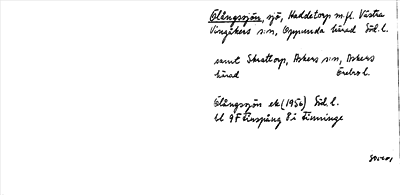 Elångssjön, sjö, Haddetorp m.fl. Västra
Vingåkers s:n, Oppunda härad Söd. l.
samt Skrattorp, Askers s:n, Askers
härad Örebro l.
Elångssjön ek (1956) Söd. l.
bl 9F Finspång 8i Finninge